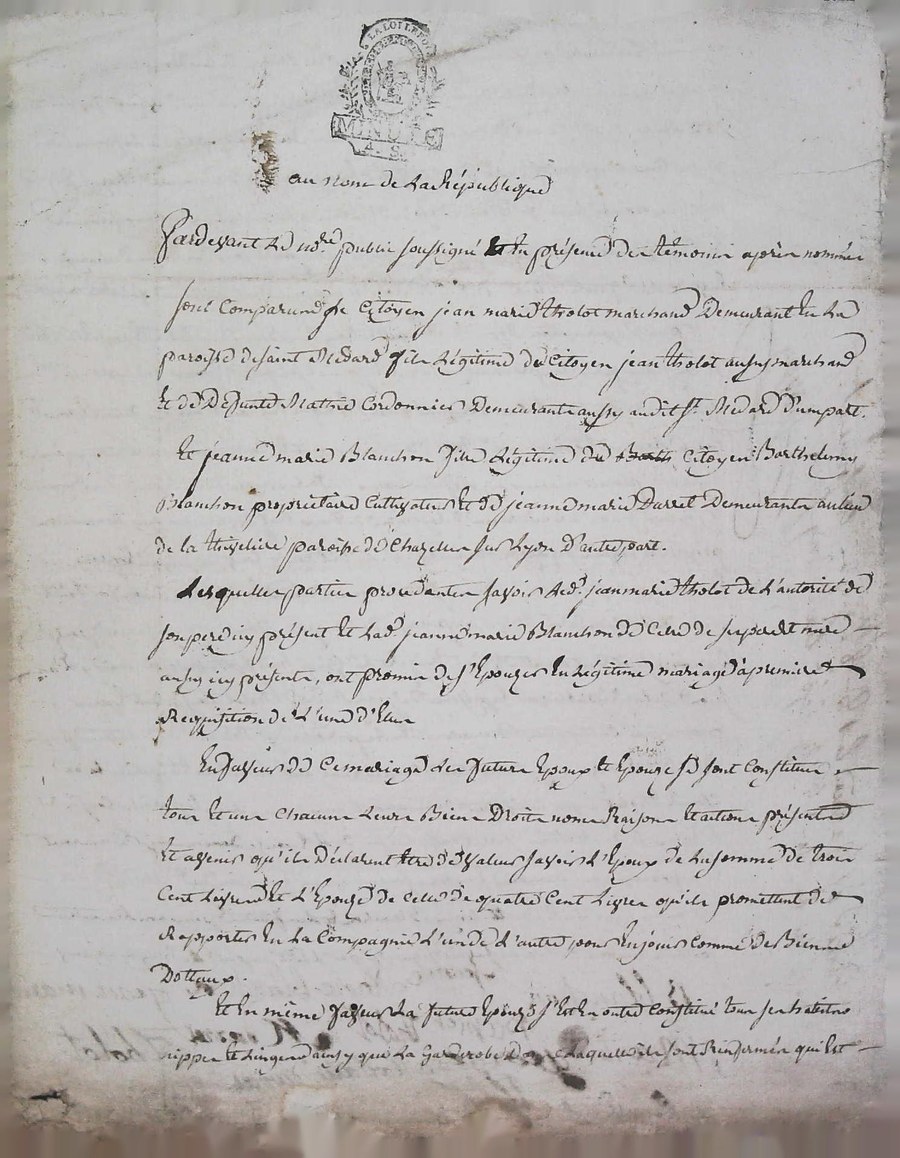 LA LOI LE ROI
MINUTE
4. S.
au nom de La République
Pardevant Le no.re public soussigné Et En présence des témoins après nommés
sont Comparus Le Citoyen jean marie tholot marchand Demeurant En La
paroisse de saint Médard fils Légitime du Citoyen jean tholot aussy marchand
Et de Defunte Mathie Cordonnier Demeurants aussy audit St. Médard D'une part.
Et jeanne marie Blanchon fille Légitime du Citoyen Barthelemy
Blanchon propriétaire Cultivateur Et de jeanne marie Durret Demeurants au lieu
de la thiveliere paroisse de Chazelles sur Lyon D'autre part.
Lesquelles parties procedantes savoir Led. jean marie tholot de L'autorité de
son pere icy présent Et Lad. jeanne marie Blanchon de Celle de ses pere Et mere
aussy icy présents, ont promis de s'Epouser En Légitime mariage à premiere
Requisition de L'une d'Elles
En faveur de Ce mariage Les futurs Epoux Et Epouse se sont Constitués
tous Et uns Chacuns Leurs Biens Droits noms Raisons Et actions présents
Et avenir qu'ils Déclarent être de valeur savoir L'Epoux de La somme de trois
Cent Livres Et L'Epouse de Celle de quatre Cent Livres qu'ils promettent de
Rapporter En La Compagnie L'un de L'autre pour En jouir Comme de Biens
Dottaux.
Et En même faveur La future Epouse s'est En outre Constitué tous ses habits
nippes Et Linges ainsy que La Garderobe Dans Laquelle ils sont Renfermés qui Est